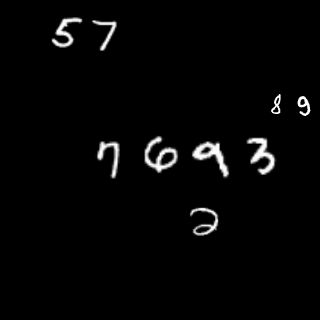 57
89
7693
2